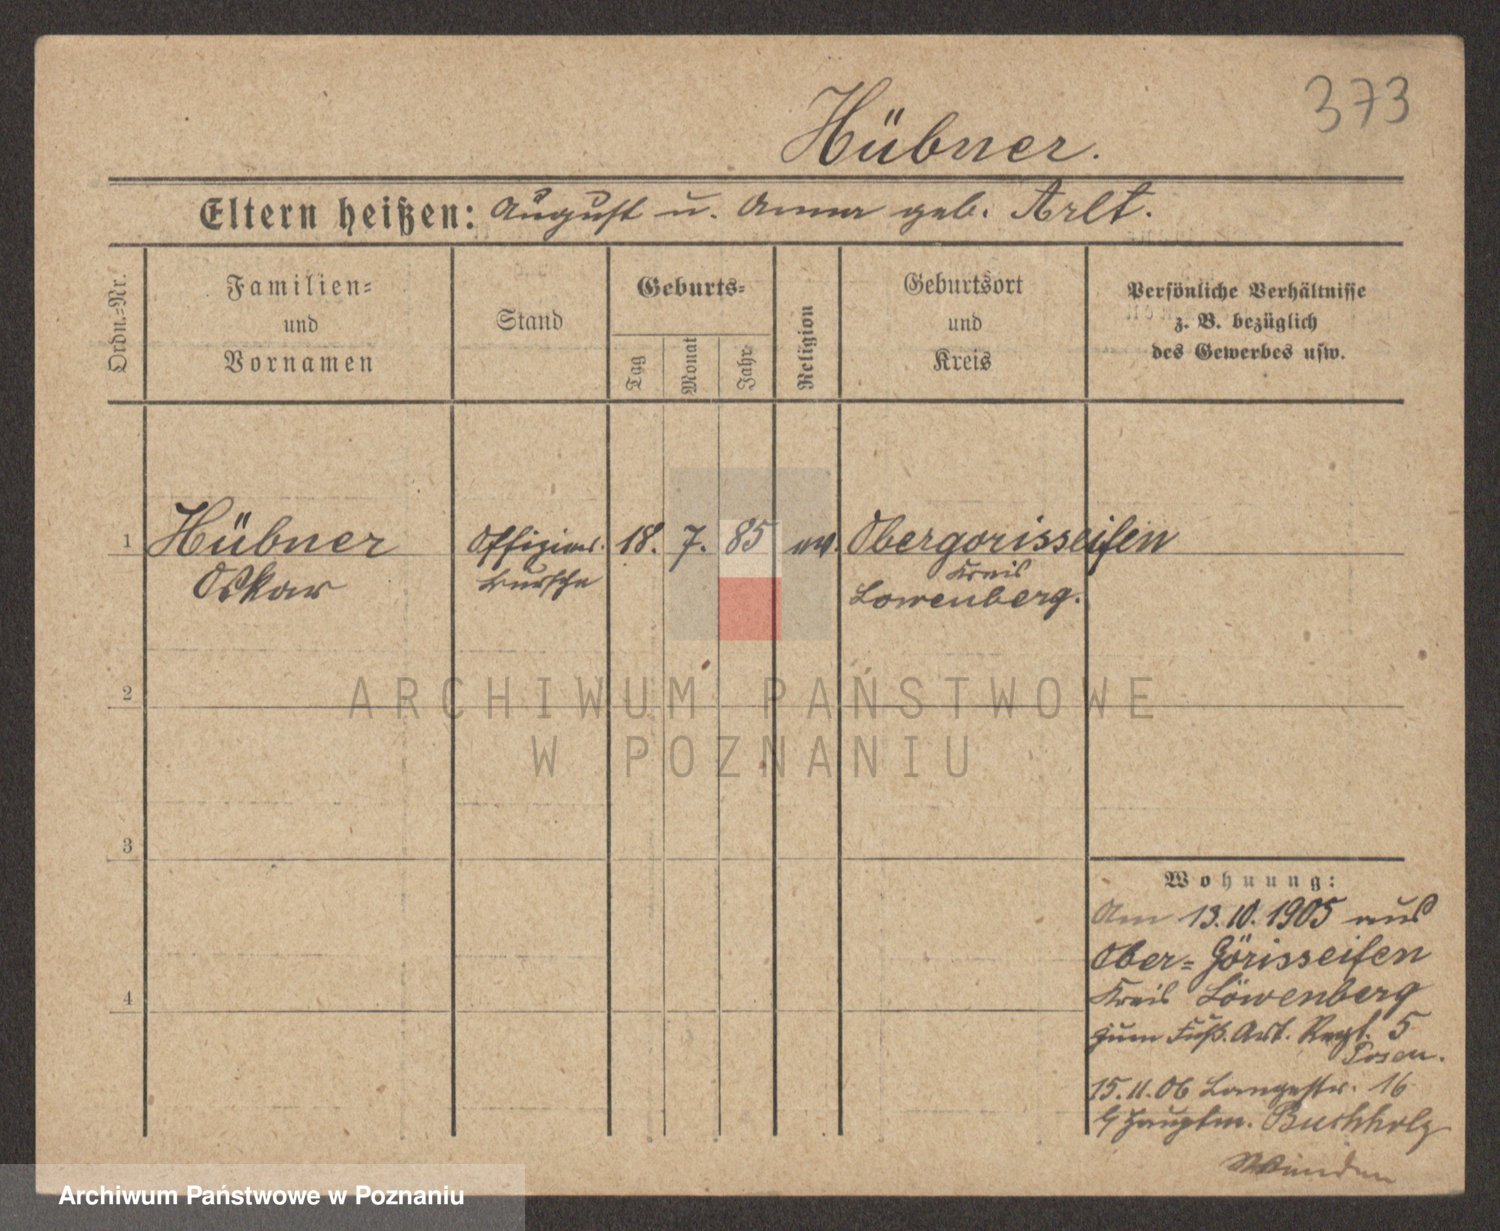 373
Hübner.
Eltern heißen: August u. Anna geb. Arlt.
Ordn.-Nr.
Familien-
und
Vornamen
Stand
Geburts-
Tag
Monat
Jahr
Religion
Geburtsort
und
Kreis
Persönliche Verhältnisse
z. B. bezüglich
des Gewerbes usw.
1 Hübner Offiziers- 18. 7. 85 ev. Obergorisseifen
Oskar bursche Kreis
Lowenberg.
2
3
4
Wohnung:
Am 13.10.1905 aus
Ober-Görisseifen
Kreis Löwenberg
zum Fuß. Art. Regt. 5
Posen.
15.11.06 Langestr. 16
b/ Hauptm. Buchholz
ARCHIWUM PAŃSTWOWE
W POZNANIU
Archiwum Państwowe w Poznaniu